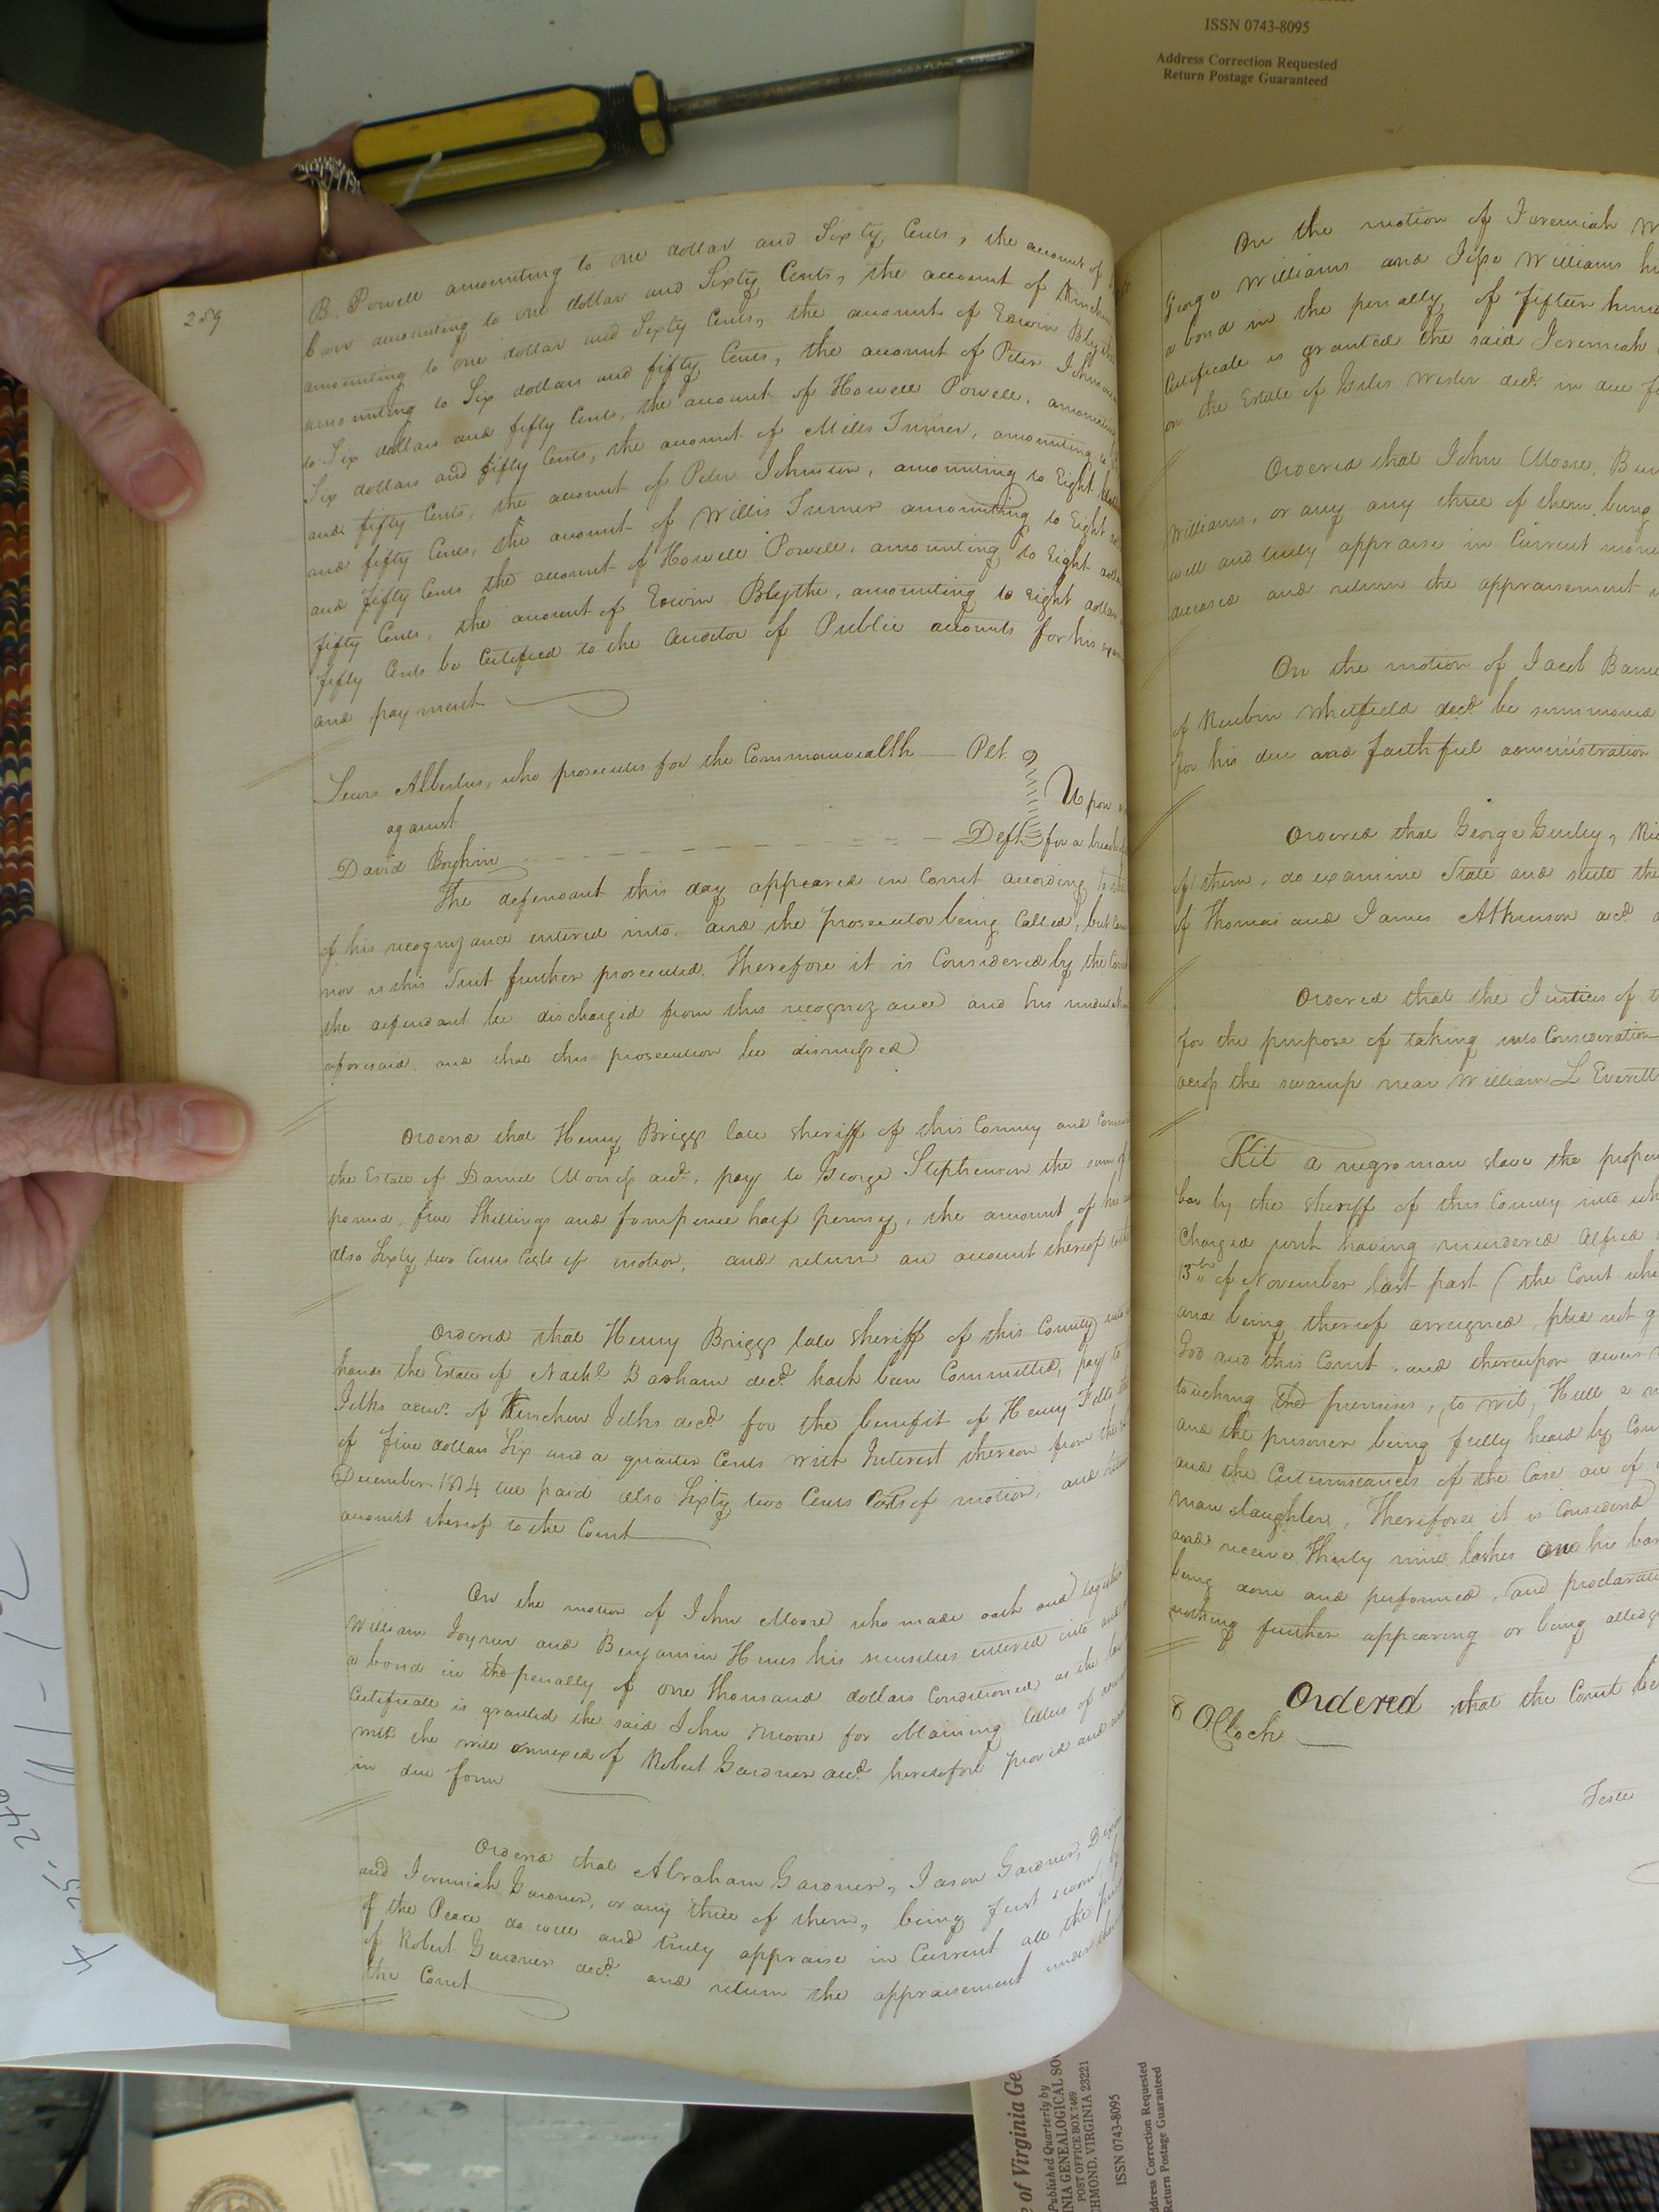 ISSN 0743-8095
Address Correction Requested
Return Postage Guaranteed
259
B. Powell amounting to one dollar and Sixty Cents, the account of
Carr amounting to one dollar and Sixty Cents, the account of Kinchen
amounting to one dollar and Sixty Cents, the amount of Edwin Blythe
amounting to Six dollars and fifty Cents, the account of Peter Johnson
to Six dollars and fifty Cents, the account of Howell Powell, amounting
Six dollars and fifty Cents, the account of Mills Turner, amounting to
and fifty Cents, the account of Peter Johnson, amounting to Eight
and fifty Cents, the amount of Willis Turner amounting to Eight
and fifty Cents the account of Howell Powell, amounting to Eight
fifty Cents, the amount of Edwin Blythe, amounting to Eight dollars
fifty Cents be Certified to the Auditor of Public accounts for his
and payment
Lewis Albertus, who prosecutes for the Commonwealth Plt.
against Upon
David Boykin Deft for a breach
The defendant this day appeared in Court according to the
of his recognizance entered into, and the prosecutor being Called, but
nor is this Suit further prosecuted. Therefore it is Considered by the
the defendant be discharged from this recognizance and his
aforesaid, and that this prosecution be dismissed
Ordered that Henry Briggs late Sheriff of this County and
the Estate of Daniel decd., pay to George Stephenson the sum of
pound, five Shillings and fourpence half penny, the amount of his
also Sixty two Cents Costs of motion, and return an account thereof
Ordered that Henry Briggs late Sheriff of this County
hands the Estate of Nathl Barham decd. hath been Committed, pay to
Jelks admr. of Kinchen Jelks decd. for the benefit of Henry
of five dollars Six and a quarter Cents with Interest thereon from the
December 1814 till paid also Sixty two Cents Costs of motion, and
account thereof to the Court
On the motion of John Moore who made oath and together
William Joyner and Benjamin Hines his securities entered into and
a bond in the penalty of one thousand dollars Conditioned as the
Certificate is granted the said John Moore for obtaining letters of
with the will annexed of Robert Gardner decd. heretofore proved and
in due form
Ordered that Abraham Gardner, Jason Gardner,
and Jeremiah Gardner, or any three of them, being first sworn
of the Peace do well and truly appraise in Current all the
of Robert Gardner decd. and return the appraisement under
the Court
On the motion of Jeremiah
George Williams and Jesse Williams
a bond in the penalty of fifteen
Certificate is granted the said Jeremiah
on the Estate of Giles Wester decd. in due
Ordered that John Moore,
Williams, or any any three of them being
well and truly appraise in Current
deceased and return the appraisement
On the motion of Jacob
of Reubin Whitfield decd. be summoned
for his due and faithful administration
Ordered that George Gurley,
of them, do examine State and settle the
of Thomas and James Atkinson decd.
Ordered that the Justices of
for the purpose of taking into Consideration
across the swamp near William L Everitt
Kit a negro man slave the
bar by the Sheriff of this County into
Charged with having murdered Alfred
13th of November last past (the Court
and being thereof arraigned, plead not
God and this Court, and thereupon divers
touching the premises, to wit, Hill a
and the prisoner being fully heard by
and the Circumstances of the Case are of
man slaughter, Therefore it is Considered
and receive Thirty nine lashes on his
being done and performed, and
nothing further appearing or being
Ordered that the Court be
8 OClock
Teste
of Virginia
Published Quarterly by
POST OFFICE BOX 7469
VIRGINIA 23221
ISSN 0743-8095
Address Correction Requested
Return Postage Guaranteed